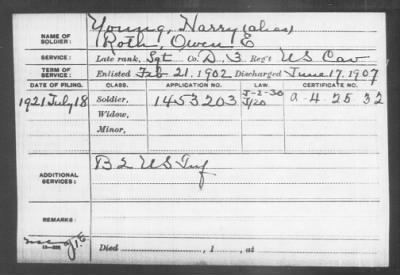 NAME OF SOLDIER: Young, Harry (alias)
Roth, Owen E
SERVICE: Late rank, Sgt Co. D, 3 Reg't US Cav
TERM OF SERVICE: Enlisted Feb 21, 1902 Discharged June 17, 1907
DATE OF FILING. CLASS. APPLICATION NO. LAW. CERTIFICATE NO.
1921 July 18 Soldier, 1453203 J-2-30 J/20 a-4-25 32
Widow,
Minor,
ADDITIONAL SERVICES: B 2 US Inf
Died , 1 , at